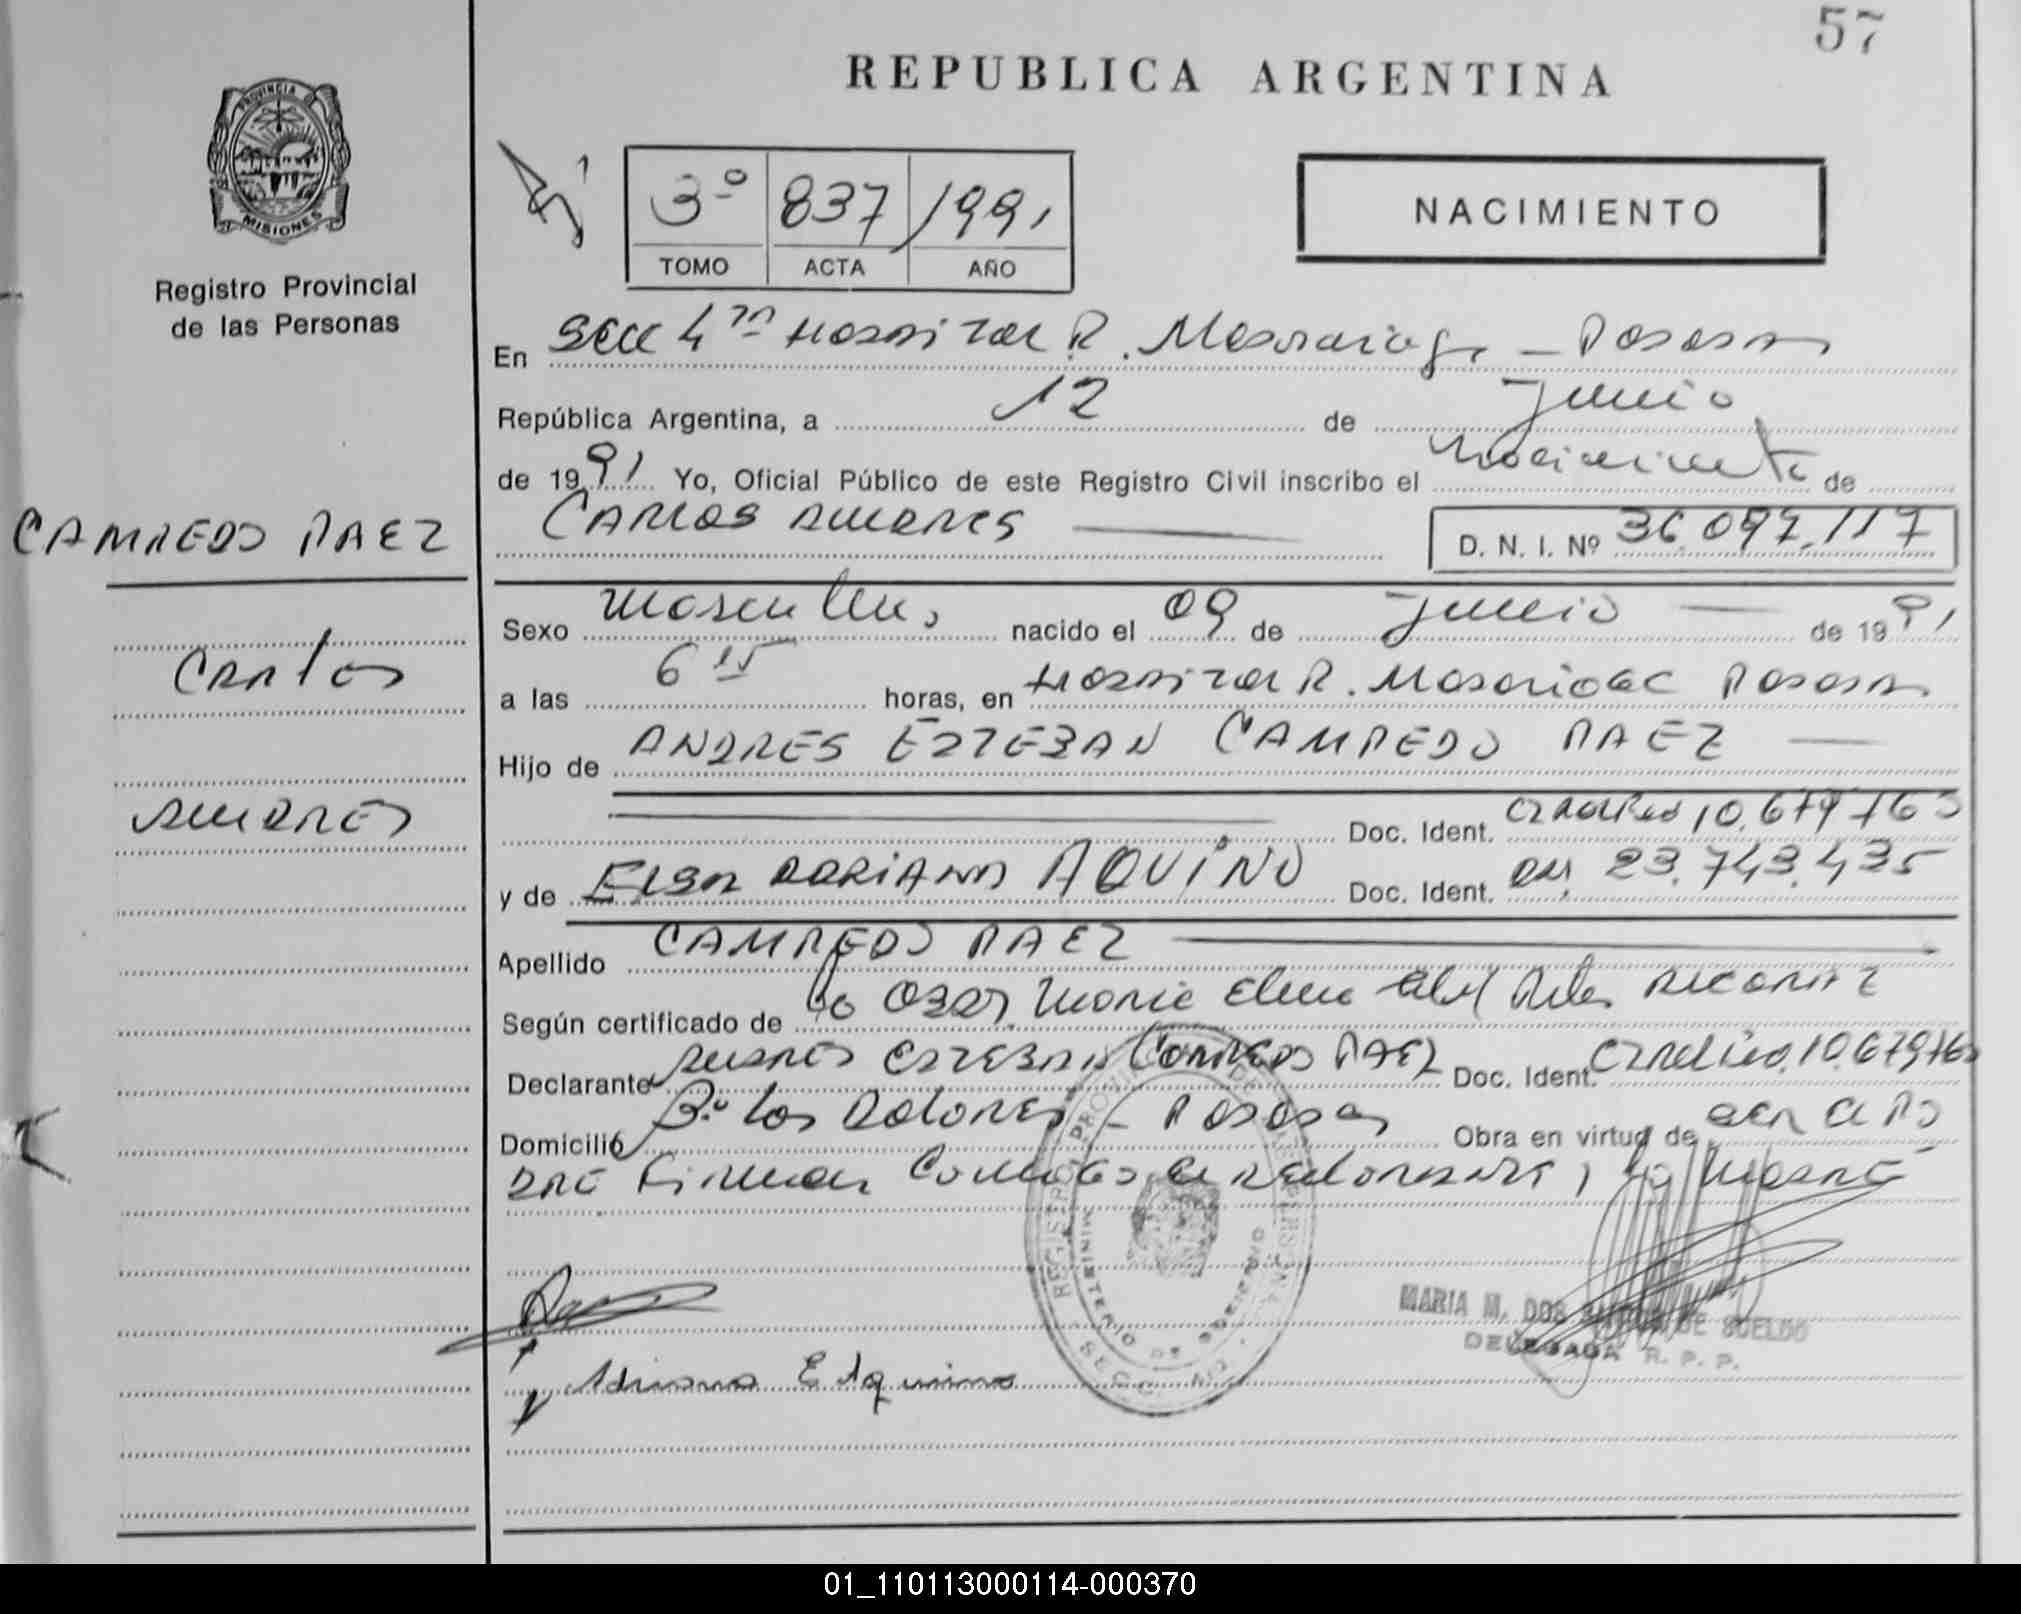 57
REPUBLICA ARGENTINA
PROVINCIA DE
MISIONES
Registro Provincial
de las Personas
3º 837 1991
TOMO ACTA AÑO
NACIMIENTO
En Secc 4ta Hospital R. Madariaga - Posadas
República Argentina, a 12 de Junio
de 1991 Yo, Oficial Público de este Registro Civil inscribo el Nacimiento de
CARLOS ANDRES D. N. I. Nº 36.097.117
CAMPEDO PAEZ
Carlos
ANDRES
Sexo Masculino nacido el 09 de Junio de 1991
a las 6 15 horas, en Hospital R. Madariaga Posadas
Hijo de ANDRES ESTEBAN CAMPEDO PAEZ
Doc. Ident. 10.679.763
y de ELSA ADRIANA AQUINO Doc. Ident. DNI 23.743.435
Apellido CAMPEDO PAEZ
Según certificado de la
Declarante ANDRES ESTEBAN CAMPEDO PAEZ Doc. Ident. 10.679.763
Domicilio Bº Los Dolores - Posadas Obra en virtud de
Firman Conmigo el Declarante, la Madre
MARIA M. DOS SANTOS DE SUELDO
DELEGADA R. P. P.
Adriana E Aquino
REGISTRO PROVINCIAL DE LAS PERSONAS
MINISTERIO DE GOBIERNO
01_110113000114-000370